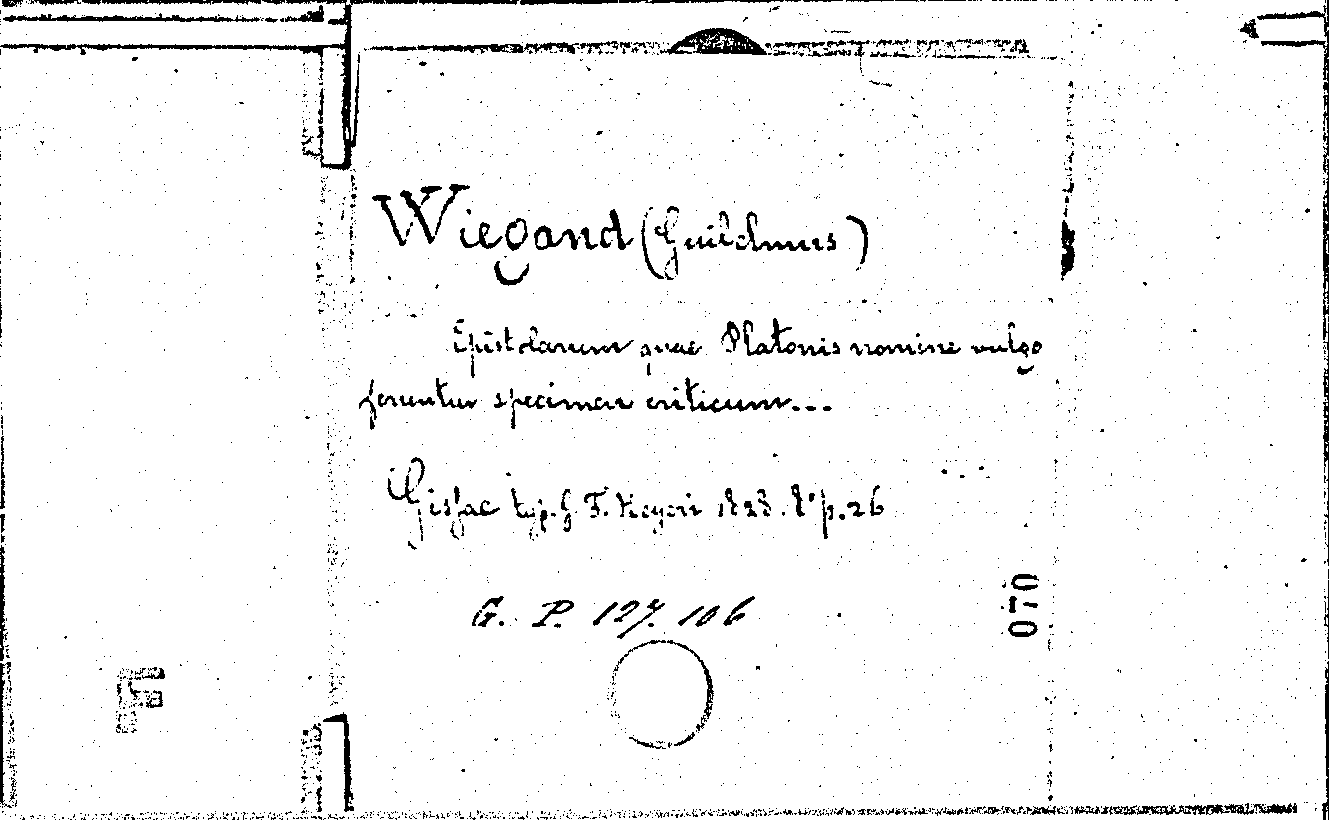 Wiegand (Guilelmus)
Epistolarum quae Platonis nomine vulgo
feruntur specimen criticum...
Gissae typ. G. F. Heyeri 1828. 8° p. 26
G. P. 127. 106
070
F